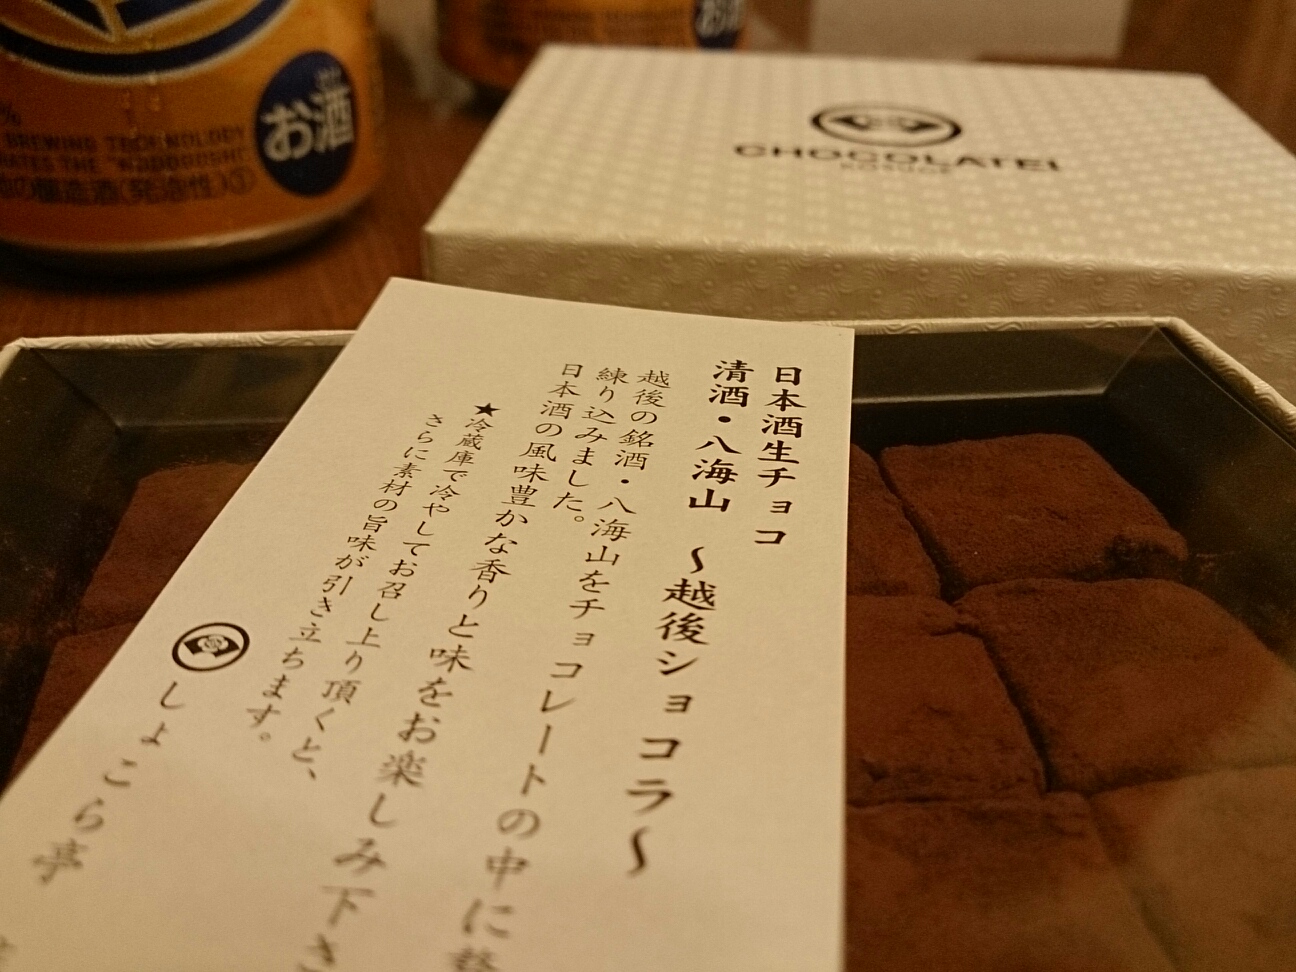 お酒
BREWING TECHNOLOGY
RATES THE "NODOGOSHI"
の醸造酒(発泡性)①
お酒
CHOCOLATEI
KOSUGE
日本酒生チョコ
清酒・八海山 〜越後ショコラ〜
越後の銘酒・八海山をチョコレートの中に
練り込みました。
日本酒の風味豊かな香りと味をお楽しみ下さ
★冷蔵庫で冷やしてお召し上り頂くと、
さらに素材の旨味が引き立ちます。
しょこら亭